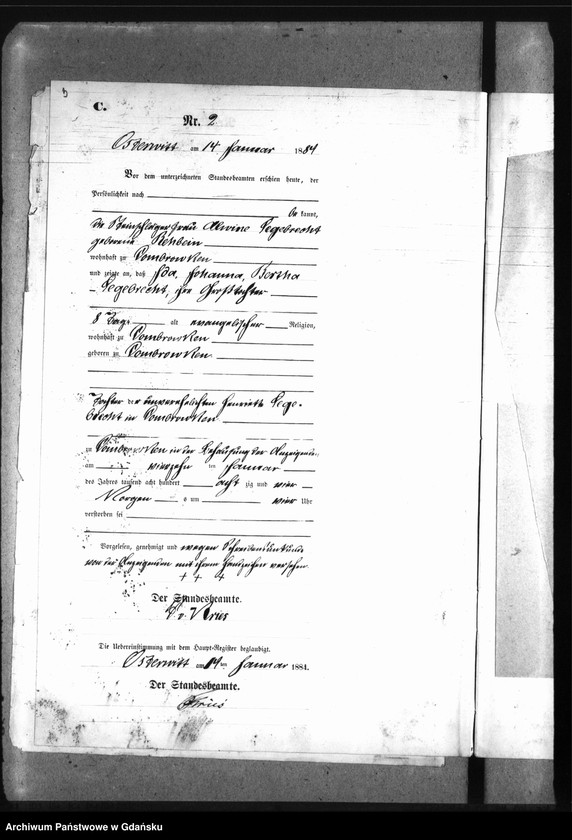 C.
Nr. 2
Osterwitt am 14. Januar 1884
Vor dem unterzeichneten Standesbeamten erschien heute, der
Persönlichkeit nach
be kannt,
die Steinschlägerfrau Alwine Segebrecht
geborene Rehbein
wohnhaft zu Dombrowken
und zeigte an, daß Ida, Johanna, Bertha
Segebrecht, ihre Großtochter
8 Tage alt evangelischer Religion,
wohnhaft zu Dombrowken
geboren zu Dombrowken
Tochter der unverehelichten Henriette Sege-
brecht in Dombrowken
zu Dombrowken in der Behausung der Anzeigerin
am vierzehn ten Januar
des Jahres tausend acht hundert acht zig und vier
Morgen s um vier Uhr
verstorben sei
Vorgelesen, genehmigt und wegen Schreibensunkunde
von der Anzeigenden mit ihrem Handzeichen versehen
+ + +
Der Standesbeamte.
v. Kries
Die Uebereinstimmung mit dem Haupt-Register beglaubigt.
Osterwitt am 14 ten Januar 1884.
Der Standesbeamte.
Kries
Archiwum Państwowe w Gdańsku